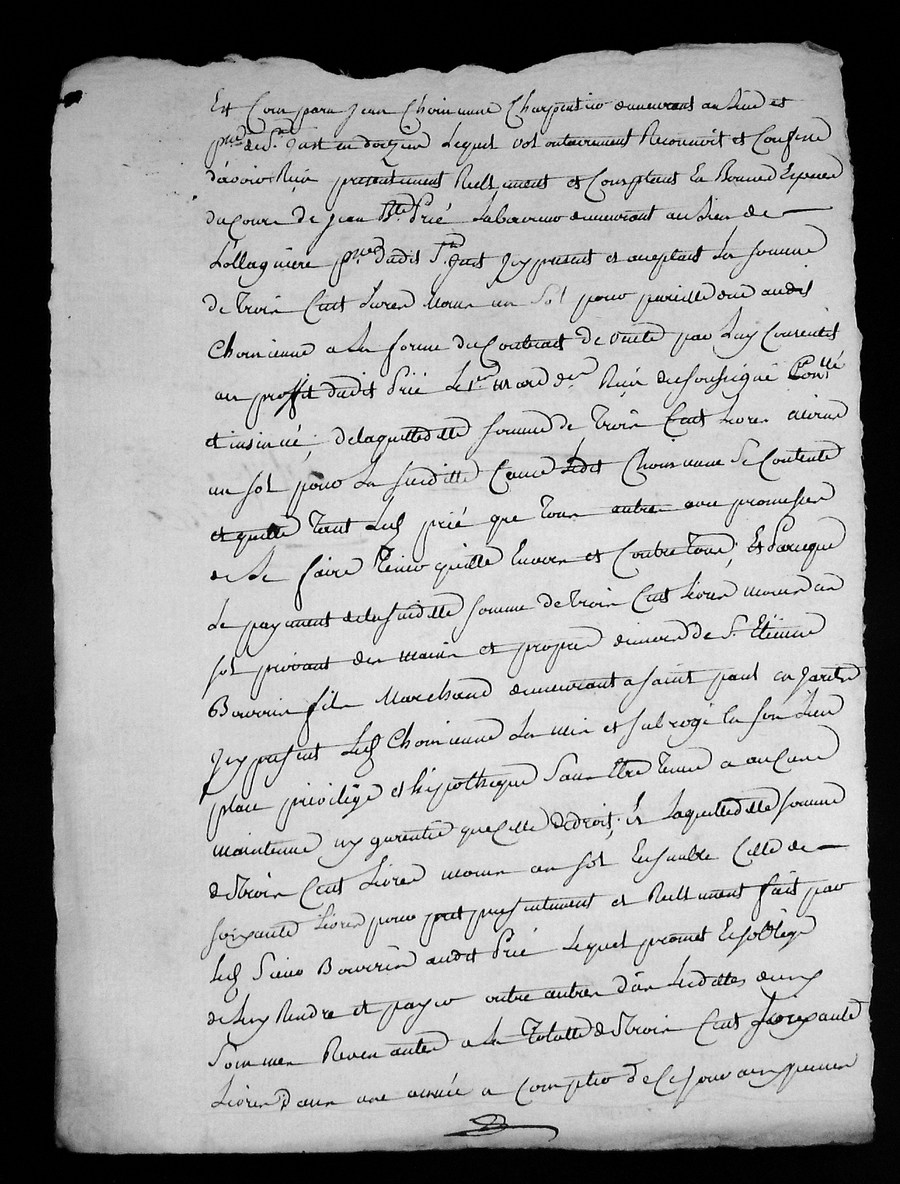 Est Comparu Jean Choinenne Charpentier demeurant au lieu et
psse de St. Just en doizieu Lequel volontairement Reconnoit et Confesse
d'avoir Reçu presentement Reellement et Comptant En Bonnes Especes
du Cours de Jean Bte Prié Laboureur demeurant au Lieu de
Lollagniere psse dudit St. Just Icy present et aceptant La somme
de Trois Cent Livres Moins un Sol pour pareille due audit
Choinenne a la forme du Contract de vente par Luy Consentit
au proffit dudit Prié Le 1er mard der Reçu du soussigné Conllé
et insinué, de laquelle ditte somme de Trois Cent Livres moins
un sol pour La susditte Cause Ledit Choinenne Se Contente
et quitte tant Led prié que Tous autres avec promesses
de Le faire Tenir quitte Envers et Contre Tous; Et Parceque
Le payment de la susditte somme de Trois Cent Livres moins un
sol provient des mains et propres deniers de S. Etienne
Bouverin fils Marchand demeurant a saint paul en Jarest
Icy present Led Choinenne La mis et subrogé En son Lieu
place privilége et hipotheque Sans Etre Tenu a aucune
maintenue ny garentie que Celle de droit. Et Laquelle ditte somme
de Trois Cent Livres moins un sol Ensemble Celle de
soixante Livres pour pret presentement et Reellement fait par
Led Sieur Bouverin audit Prié Lequel promet Et soblige
de Luy Rendre et payer outre autres d'ans Lesdittes deux
Sommes Revenantes a La Totalle de Trois Cent Soixante
Livres Dans une année a Compter de Ce jour